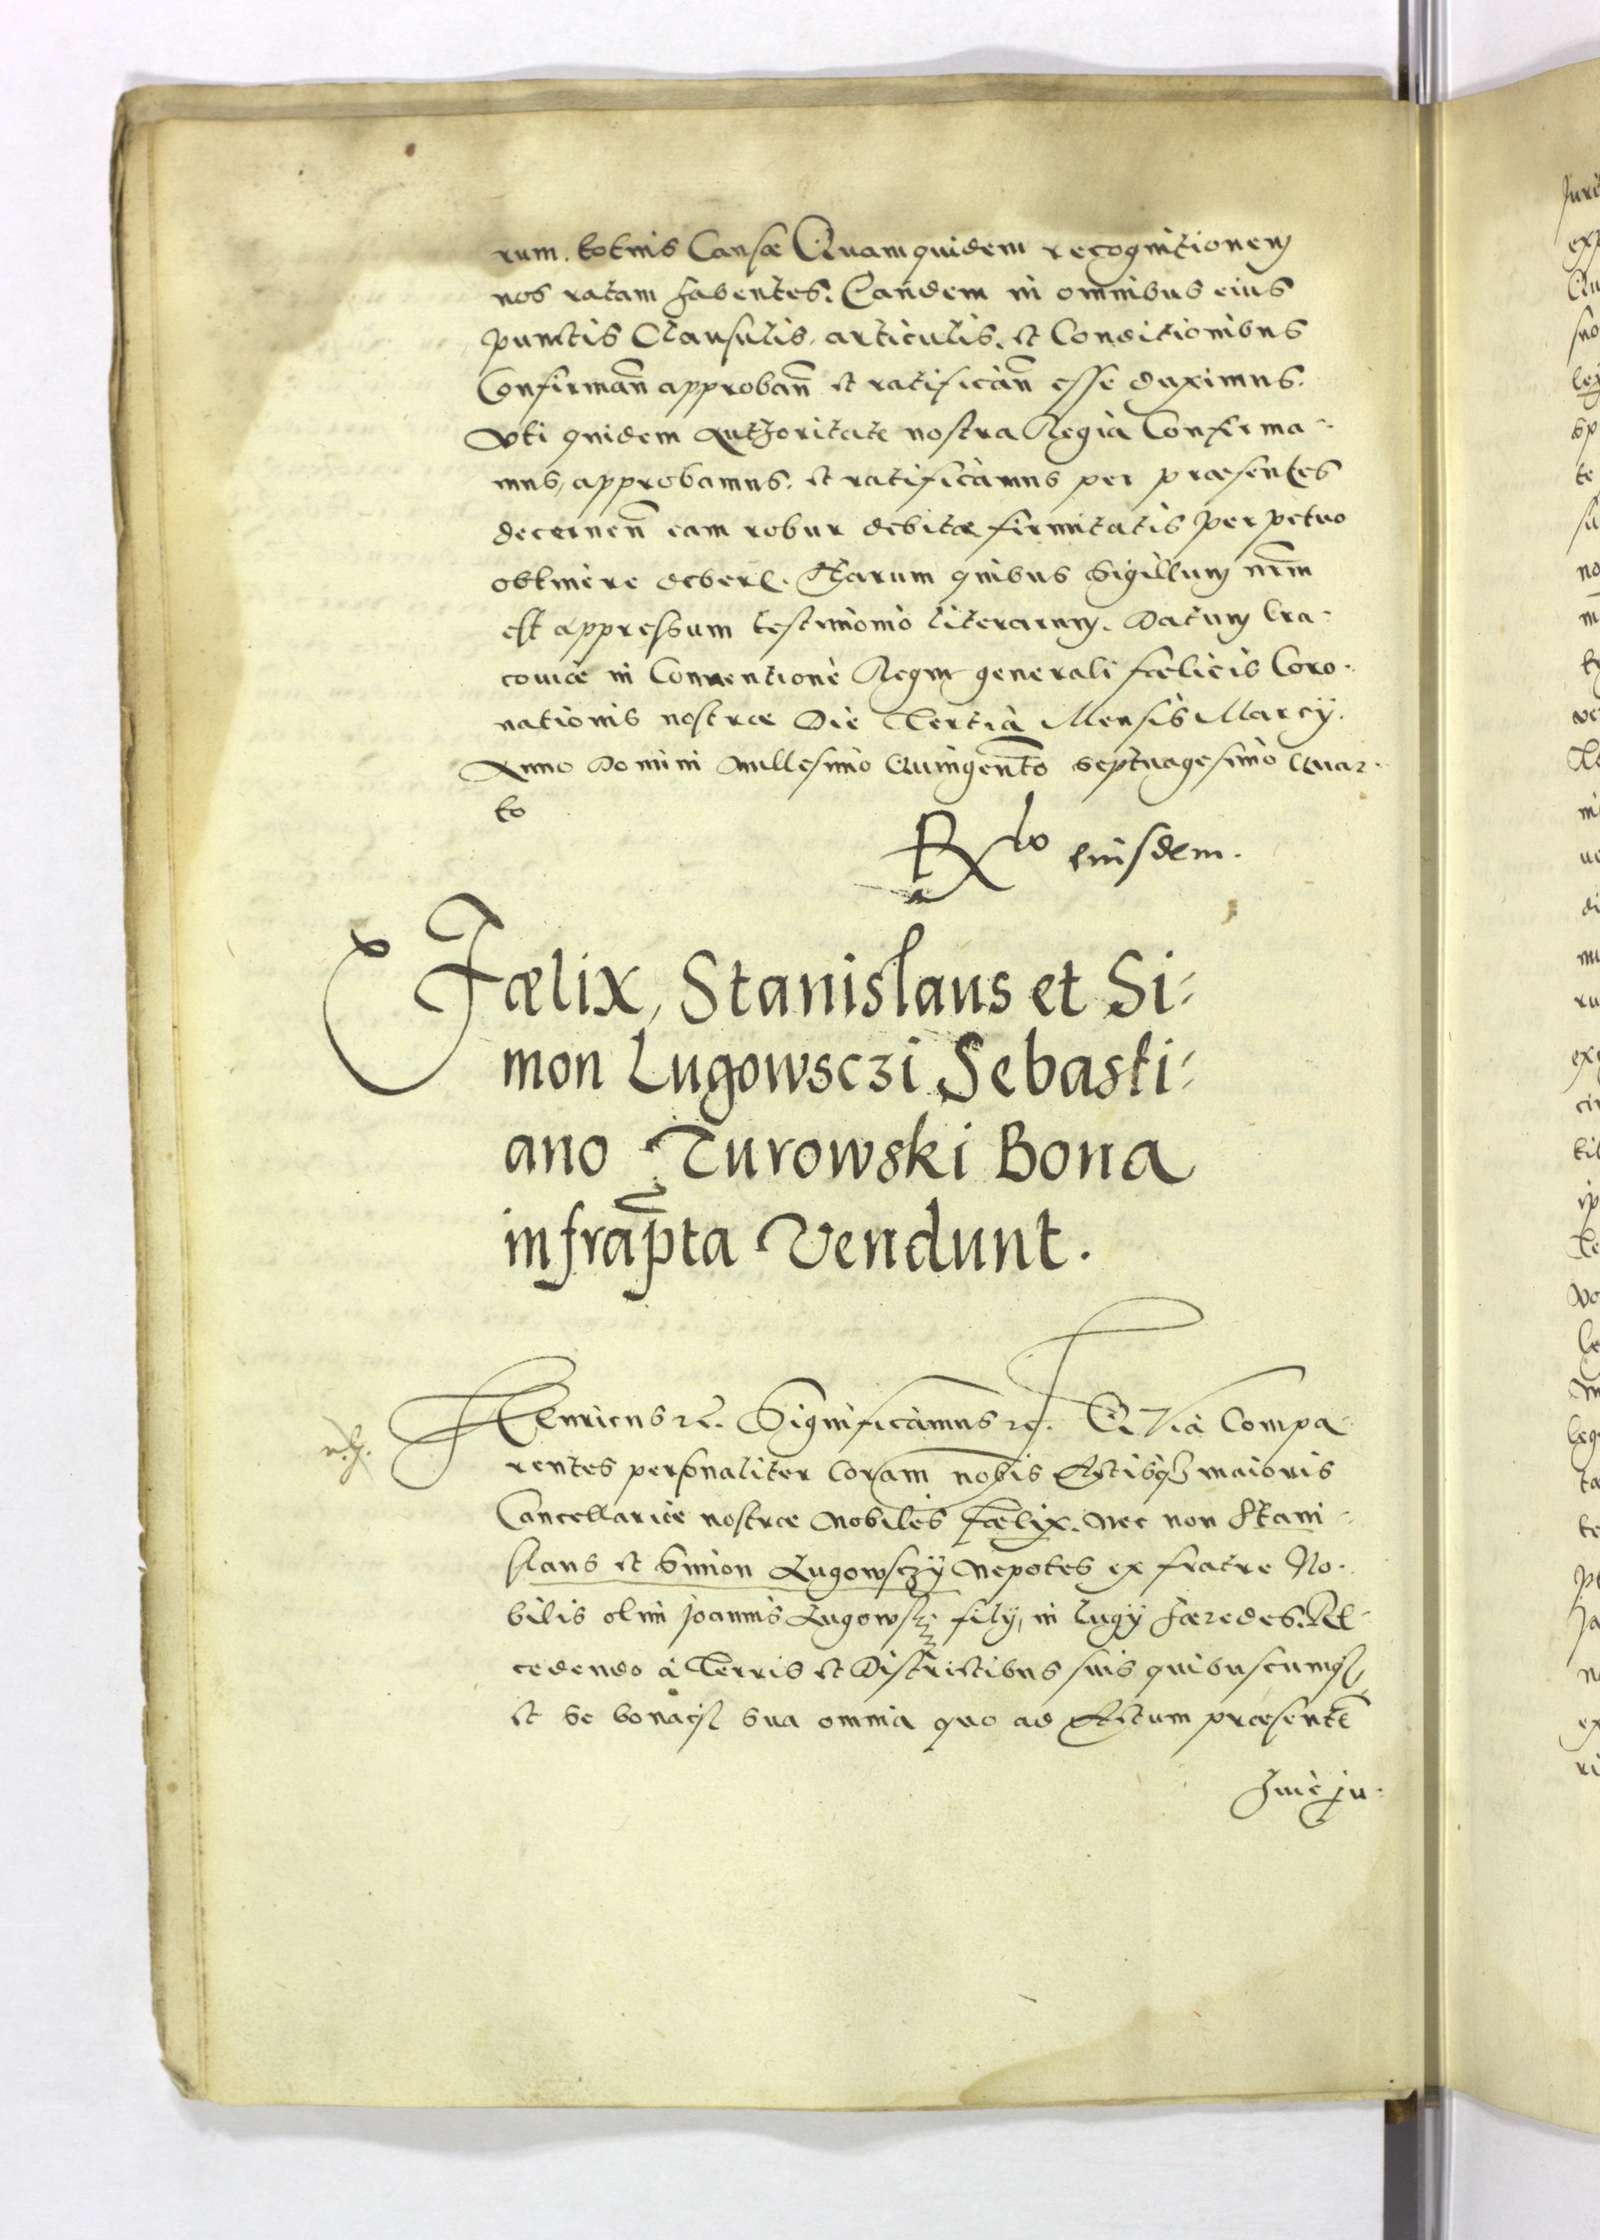 rum. totius Causæ Quamquidem recognitionem
nos ratam habentes. Eandem in omnibus eius
punctis Clausulis, articulis, et Conditionibus
Confirmañ approbañ et ratificañ esse duximus.
Vti quidem Authoritate nostra Regia Confirma-
mus, approbamus, et ratificamus per præsentes
decerneñ eam robur debitæ firmitatis perpetuo
obtinere debere. Harum quibus Sigillum nrm̃
est appressum testimonio literarum. Datum Cra-
couiæ in Conuentione Regni generali fœlicis Coro-
nationis nostræ Die Tertia Mensis Marcÿ.
Anno Domini Millesimo Quingento septuagesimo Quar-
to
Rlo eiusdem.
Fælix, Stanislaus et Si-
mon Lugowsczi Sebasti-
ano Turowski Bona
infrapta Vendunt.
Henricus etc. Significamus etc. Quia Compa-
rentes personaliter Coram nobis Actisq maioris
Cancellariæ nostræ Nobiles Fælix. Nec non Stani-
slaus et Simon Lugowsczÿ Nepotes ex fratre No-
bilis olim Joannis Lugowski filÿ, in Lugÿ hæredes. Re-
cedendo à Terris et Districtibus suis quibuscumq,
et se bonaq sua omnia quo ad Actum præsente
Huic ju-